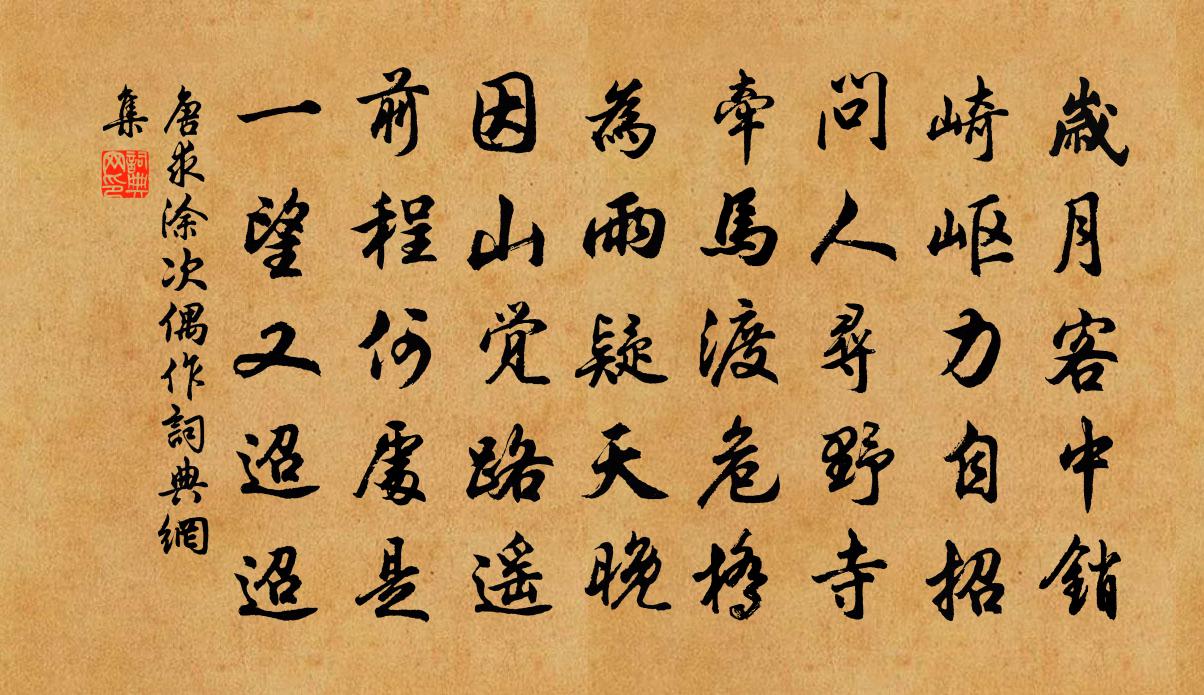 歲月客中銷
崎嶇力自招
問人尋野寺
牽馬渡危橋
為雨疑天晚
因山覺路遥
前程何處是
一望又迢迢
唐求涂次偶作詞典網
集
詞典
网印